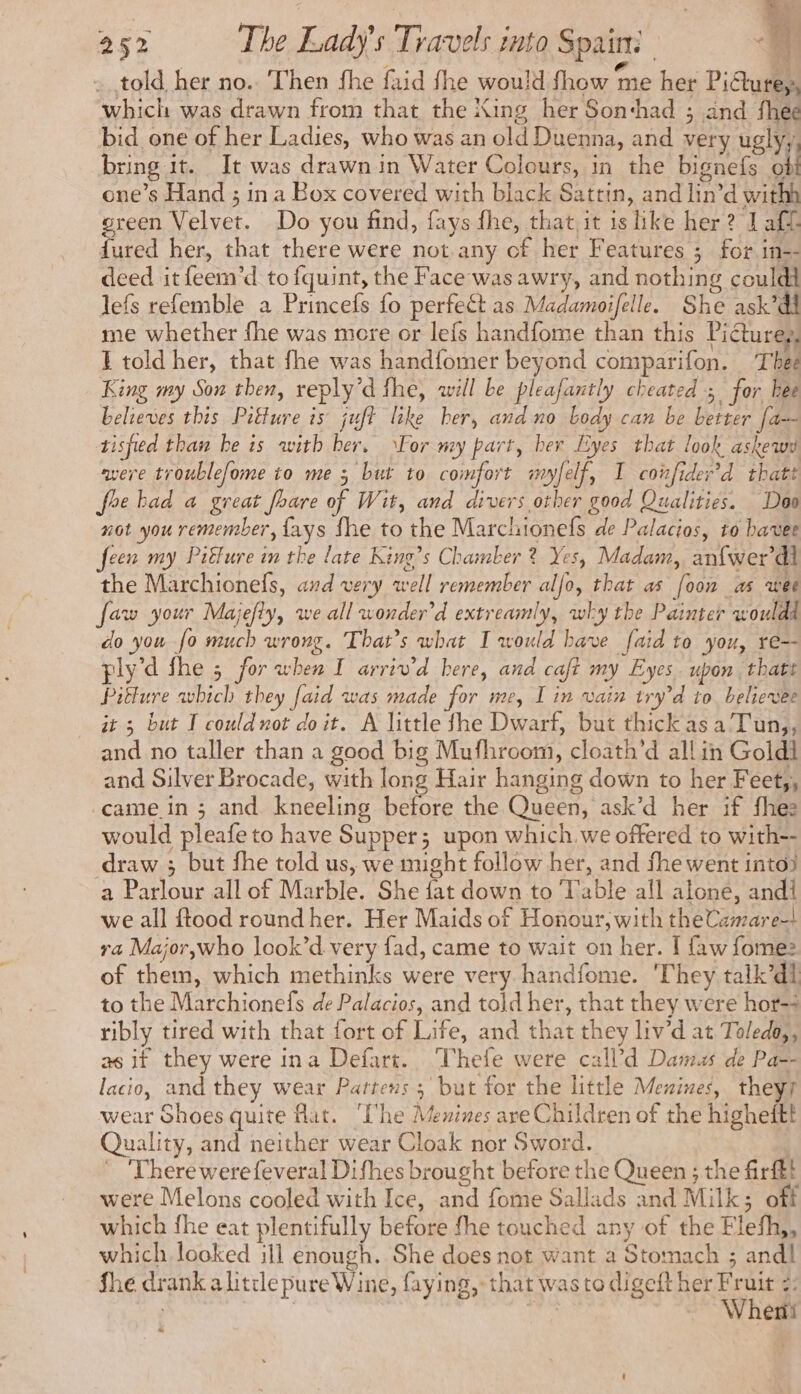 252 The Lady's Travels into Spain:
told her no. Then ſhe ſaid ſhe would ſhow me her Picture,
which was drawn from that the King her Son had ; and ſhe
bid one of her Ladies, who was an old Duenna, and very ugly,
bring it. It was drawn in Water Colours, in the bigneſs of
one's Hand ; in a Box covered with black Sattin, and lin'd with
green Velvet. Do you find, ſays ſhe, that it is like her ? I aſ-
ſured her, that there were not any of her Features ; for in-
deed it ſeem'd to ſquint, the Face was awry, and nothing could
leſs reſemble a Princeſs ſo perfect as Madamoiſelle. She ask'd
me whether ſhe was more or leſs handſome than this Picture.
I told her, that ſhe was handſomer beyond compariſon. The
King my Son then, reply'd ſhe, will be pleaſantly cheated ; for he
believes this Picture is juſt like her, and no body can be better ſa-
tisfied than he is with her. For my part, her Eyes that look askew
were troubleſome to me ; but to comfort myſelf, I conſider'd that
ſhe had a great ſhare of Wit, and divers other good Qualities. Do
not you remember, ſays ſhe to the Marchioneſs de Palacios, to have
ſeen my Picture in the late King's Chamber ? Yes, Madam, anſwer'd
the Marchioneſs, and very well remember alſo, that as ſoon as we
ſaw your Majeſty, we all wonder'd extreamly, why the Painter would
do you ſo much wrong. That's what I would have ſaid to you, re-
ply'd ſhe ; for when I arriv'd here, and caſt my Eyes upon that
Picture which they ſaid was made for me, I in vain try'd to believe
it ; but I could not do it. A little ſhe Dwarf, but thick as a Tun,
and no taller than a good big Muſhroom, cloath'd all in Gold
and Silver Brocade, with long Hair hanging down to her Feet,
came in ; and kneeling before the Queen, ask'd her if ſhe
would pleaſe to have Supper ; upon which we offered to with-
draw ; but ſhe told us, we might follow her, and ſhe went into
a Parlour all of Marble. She ſat down to Table all alone, and
we all ſtood round her. Her Maids of Honour, with the Camare-
ra Major, who look'd very ſad, came to wait on her. I ſaw ſome
of them, which methinks were very handſome. They talk'd
to the Marchioneſs de Palacios, and told her, that they were hor-
ribly tired with that ſort of Life, and that they liv'd at Toledo,
as if they were in a Deſart. Theſe were call'd Damas de Pa-
lacio, and they wear Pattens ; but for the little Menines, they
wear Shoes quite flat. The Menines are Children of the higheſt
Quality, and neither wear Cloak nor Sword.
There were ſeveral Diſhes brought before the Queen ; the firſt
were Melons cooled with Ice, and ſome Sallads and Milk ; of
which ſhe eat plentifully before ſhe touched any of the Fleſh,
which looked ill enough. She does not want a Stomach ; and
ſhe drank a little pure Wine, ſaying, that was to digeſt her Fruit :
When